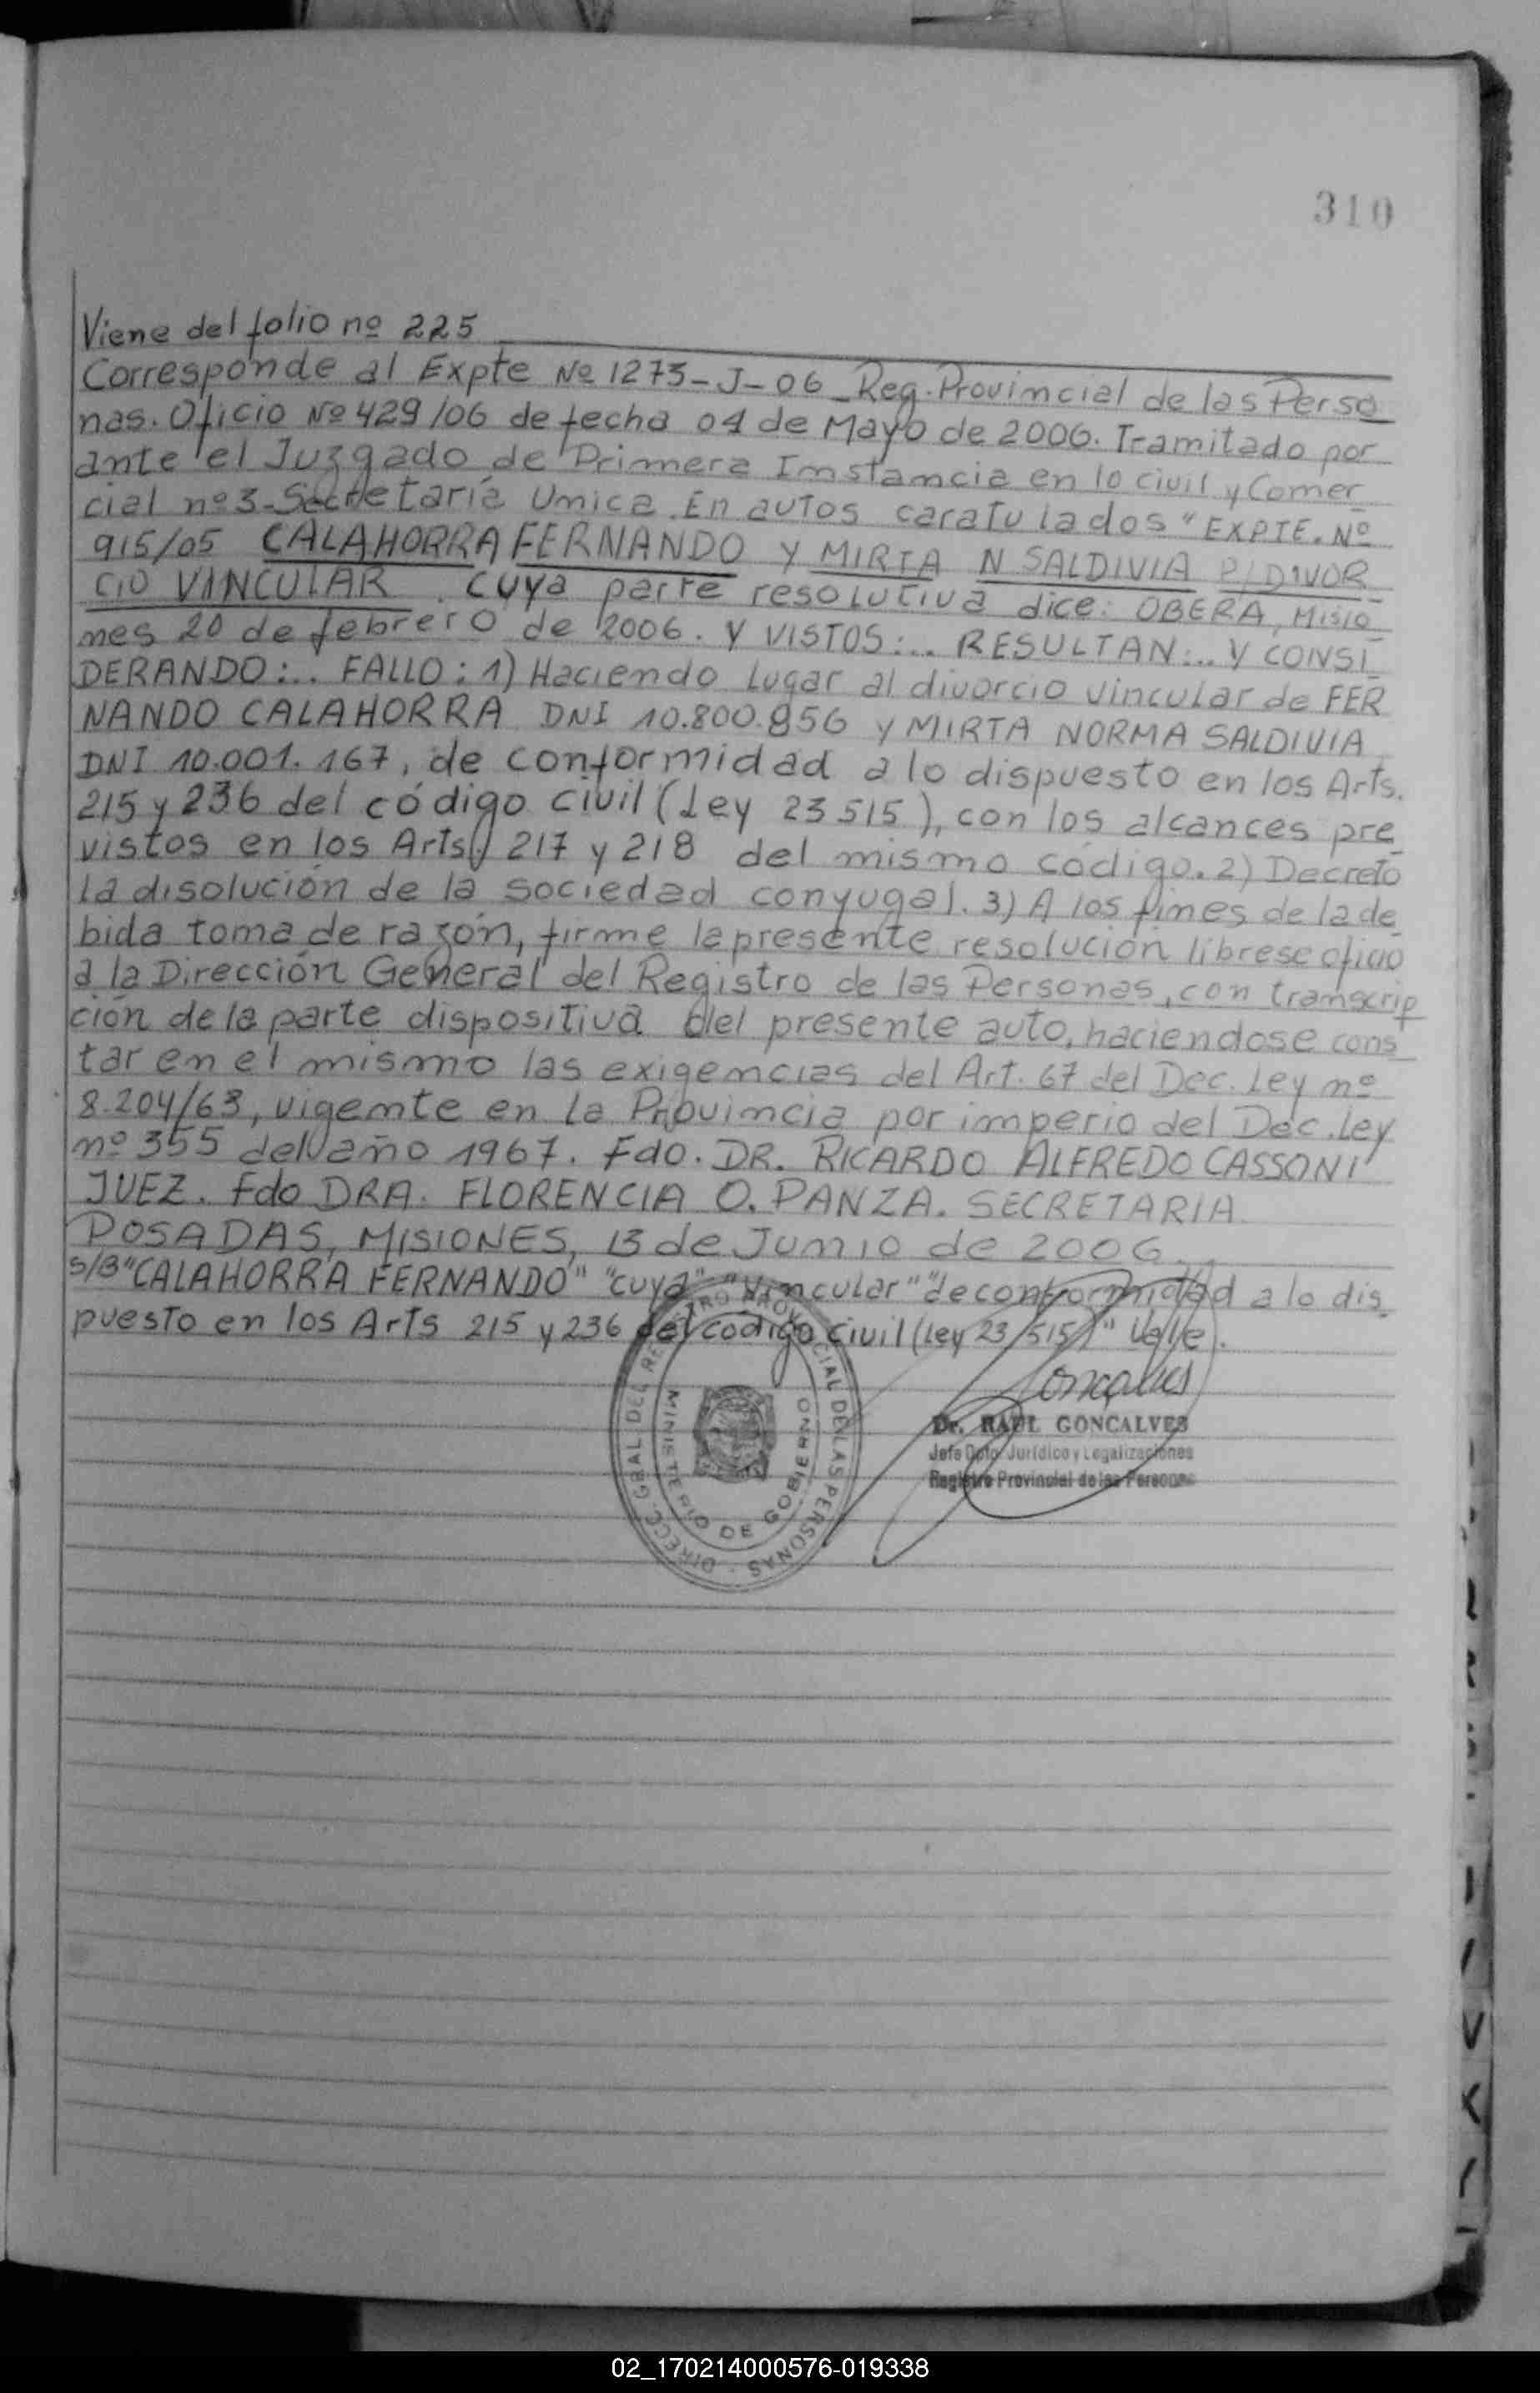 310
Viene del folio nº 225
Corresponde al Expte Nº 1273-J-06_Reg. Provincial de las Perso
nas. Oficio Nº 429/06 de fecha 04 de Mayo de 2006. Tramitado por
ante el Juzgado de Primera Instancia en lo civil y Comer
cial nº 3-Secretaría Unica. En autos caratulados "EXPTE. Nº
915/05 CALAHORRA FERNANDO Y MIRTA N SALDIVIA P/DIVOR
CIO VINCULAR. cuya parte resolutiva dice: OBERA, Misio
nes 20 de febrero de 2006. Y VISTOS:.. RESULTAN:.. Y CONSI
DERANDO:.. FALLO: 1) Haciendo Lugar al divorcio vincular de FER
NANDO CALAHORRA DNI 10.800.856 y MIRTA NORMA SALDIVIA
DNI 10.001.167, de conformidad a lo dispuesto en los Arts.
215 y 236 del código civil (Ley 23515), con los alcances pre
vistos en los Arts. 217 y 218 del mismo código. 2) Decreto
la disolución de la sociedad conyugal. 3) A los fines de la de
bida toma de razón, firme la presente resolución librese oficio
a la Dirección General del Registro de las Personas, con transcrip
ción de la parte dispositiva del presente auto, haciendose cons
tar en el mismo las exigencias del Art. 67 del Dec. Ley nº
8.204/63, vigente en la Provincia por imperio del Dec. Ley
nº 355 del año 1967. Fdo. DR. RICARDO ALFREDO CASSONI
JUEZ. Fdo DRA. FLORENCIA O. PANZA. SECRETARIA
POSADAS, MISIONES, 13 de Junio de 2006.
S/B "CALAHORRA FERNANDO" "cuya" "Vincular" "de conformidad a lo dis
puesto en los Arts 215 y 236 del código civil (Ley 23515)" Valle.
DIRECC. GRAL DEL REGISTRO PROVINCIAL DE LAS PERSONAS
MINISTERIO DE GOBIERNO
Goncalves
Dr. RAUL GONCALVES
Jefe Dpto. Jurídico y Legalizaciones
Registro Provincial de las Personas
02_170214000576-019338